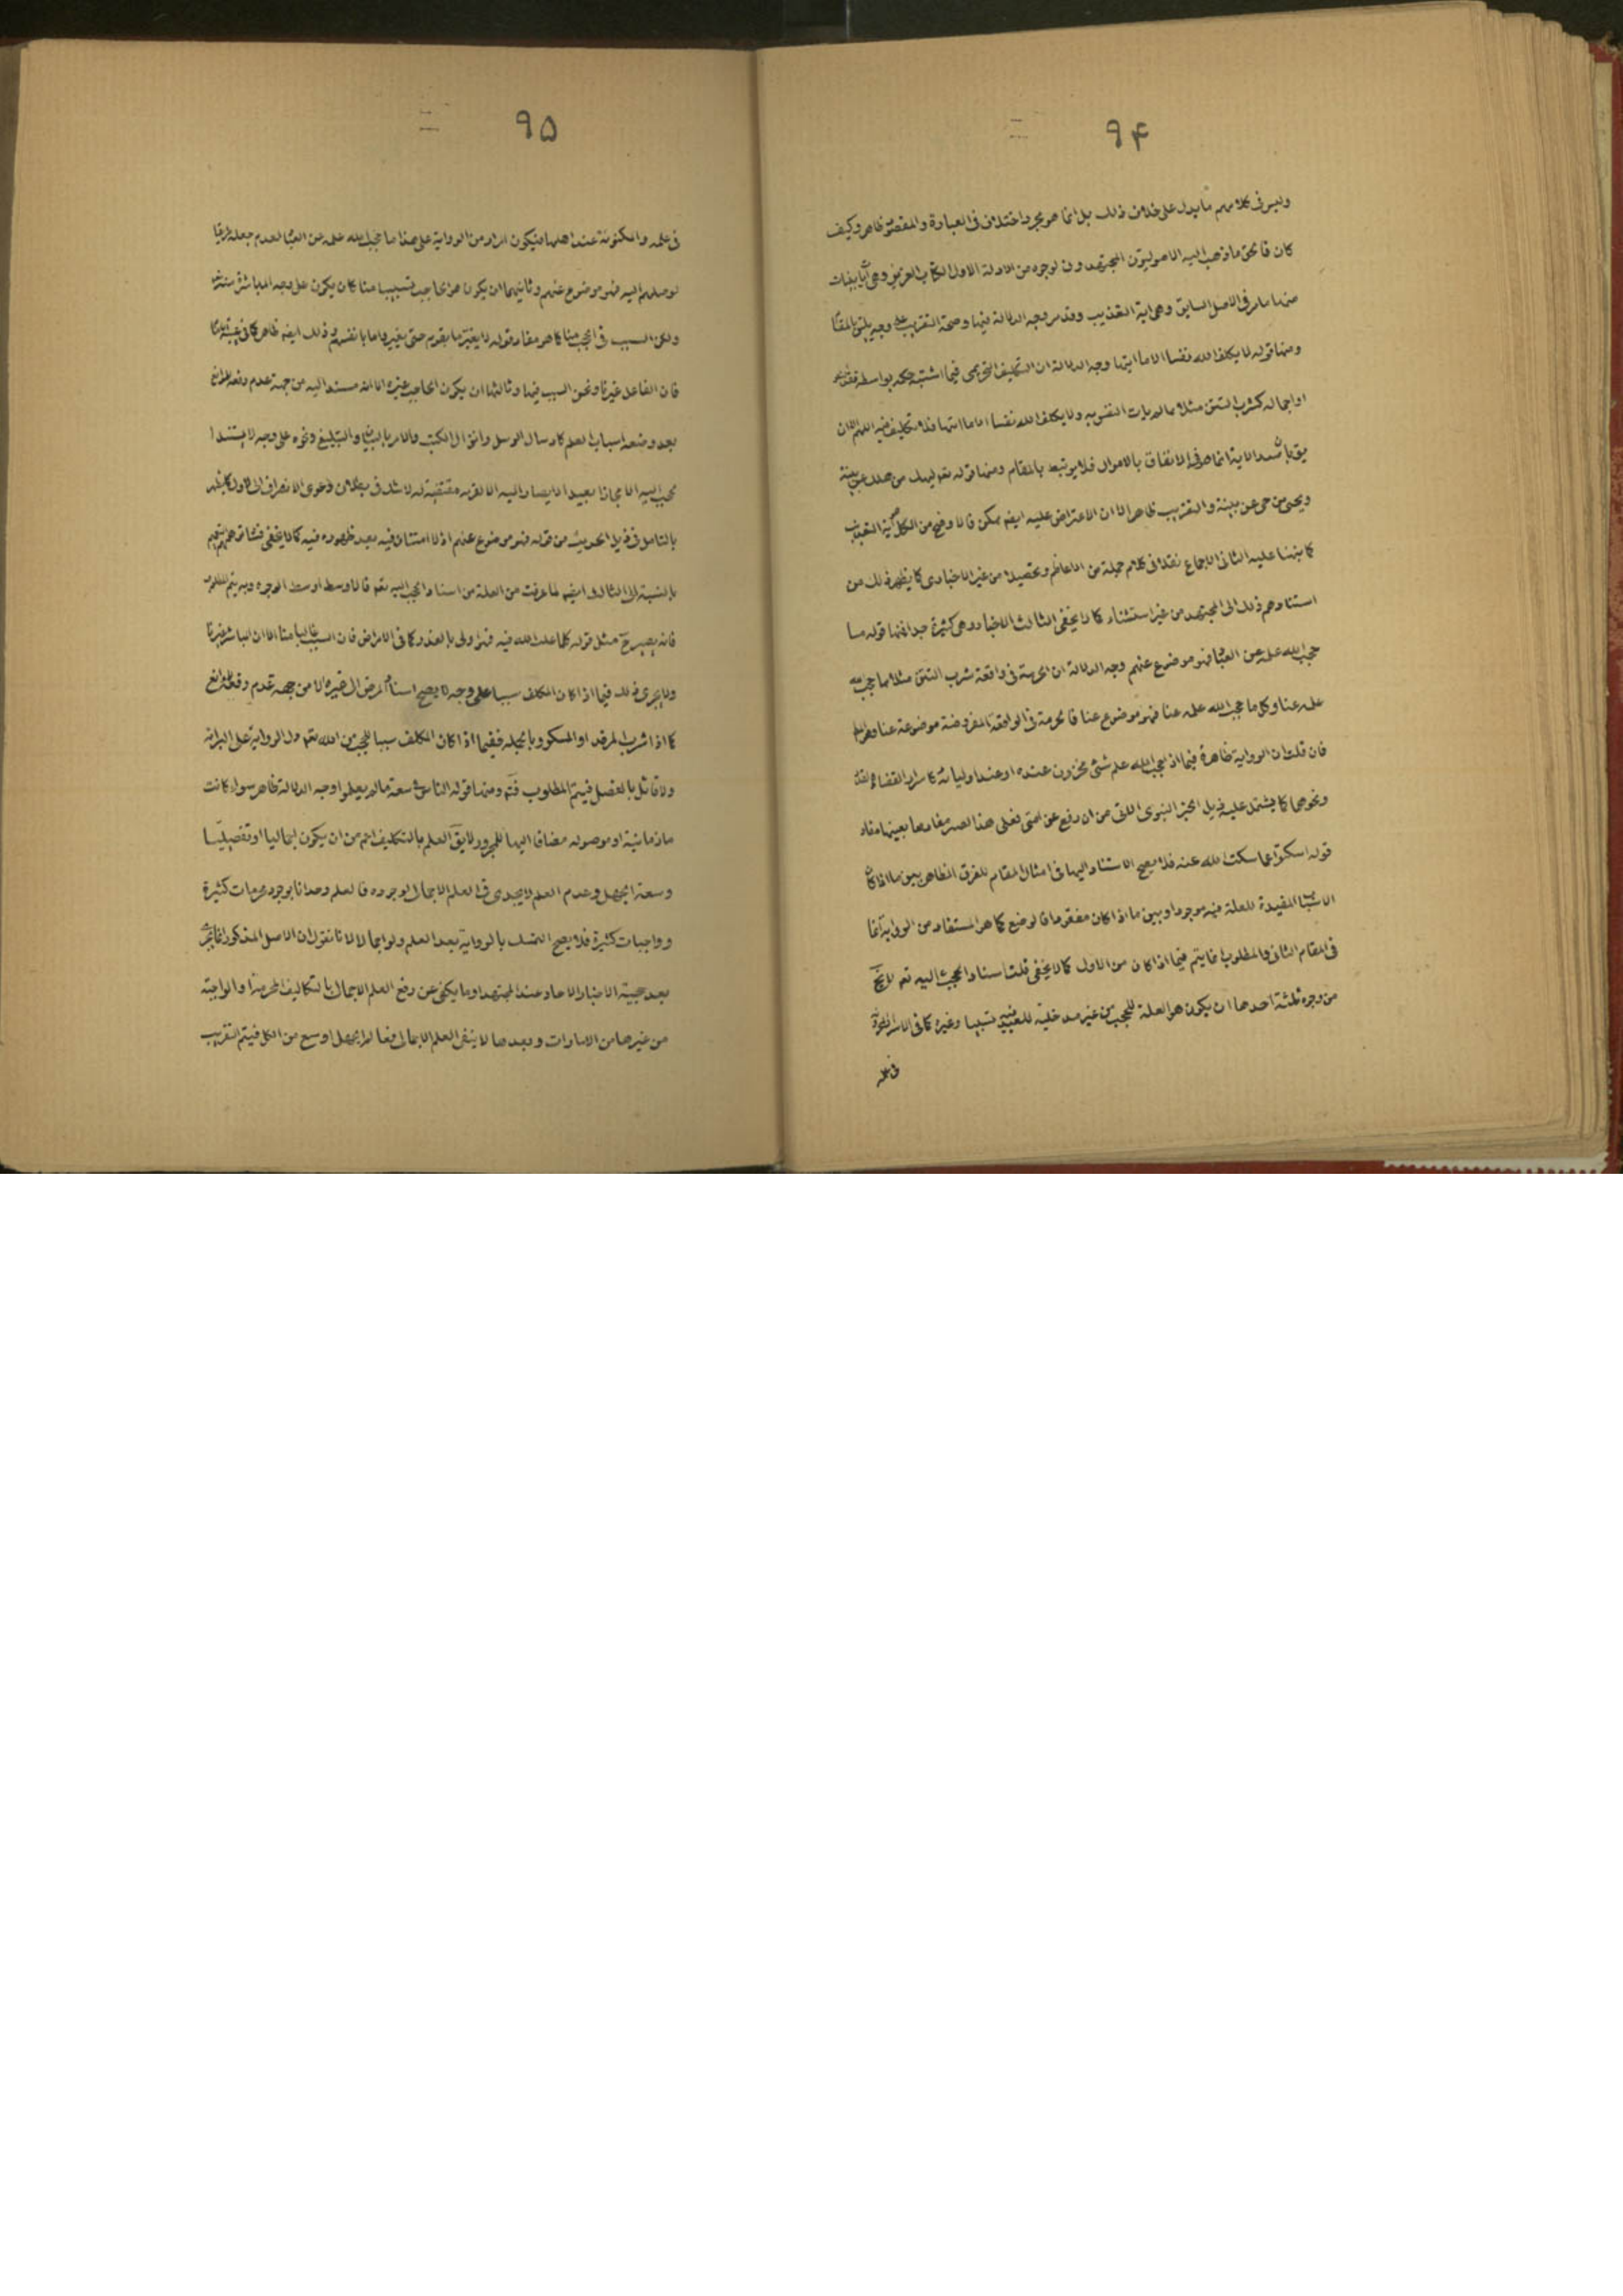 ۹۴
وليس في كلامهم ما يدل على خلاف ذلك بل انما هو مجرد اختلاف في العبارة والمقصود ظاهر وكيف
كان فالحق ما ذهب اليه الاصوليون المجتهدون لوجوه من الادلة الاول الكتاب العزيز وهي آيات بينات
منها ما مر في الاصل السابق وهي اية التعذيب وقد مر وجه الدلالة فيها وصحة التقريب على وجه يليق بالمقام
ومنها قوله لا يكلف الله نفسا الا ما اتيها وجه الدلالة ان التكليف التحريمي فيما اشتبه حكمه بواسطة فقد
او اجماله كشرب التتن مثلا مما لم يات النفس به ولا يكلف الله نفسا الا ما اتيها فلا تكليف فيه اللهم الا ان
يق بان الاية انما هو في الانفاق بالاموال فلا يرتبط بالمقام ومنها قوله تع ليهلك من هلك عن بينة
ويحيى من حي عن بينة والتقريب ظاهر الا ان الاعتراض عليه ايضا ممكن فالاوضح من الكل آية التعذيب
كما نبهنا عليه الثاني الاجماع نقلا في كلام جملة من الاعاظم وتحصيلا من غير الاخباري كما يظهر ذلك من
اسنادهم ذلك الى المجتهدين من غير استثناء كما لا يخفى الثالث الاخبار وهي كثيرة جدا فمنها قوله ما
حجب الله علمه عن العباد فهو موضوع عنهم وجه الدلالة ان الحرمة في واقعة شرب التتن مثلا مما حجب الله
علمه عنا وكل ما حجب الله علمه عنا فهو موضوع عنا فالحرمة في الواقعة المفروضة موضوعة عنا وهو المط
فان قلت ان الرواية ظاهرة فيما اذا حجب الله علم شئ مخزون عنده او عند اوليائه كاسرار القضاء والقدر
ونحوها كما يشتمل عليه ذيل الخبر النبوي الاتي من ان رفع عن امتي فعلى هذا يصير مفادها بعينها مفاد
قوله اسكتوا عما سكت الله عنه فلا يصح الاستناد اليها في امثال المقام للفرق الظاهر بين ما اذا كان
الاسباب المفيدة للعلم فيه موجودا وبين ما اذا كان مفقودا فالوضع كما هو المستفاد من الرواية انما
في المقام الثاني والمطلوب انما يتم فيما اذا كان من الاول كما لا يخفى قلت اسناد الحجب اليه تع لا يخ
من وجوه ثلثة احدها ان يكون هو العلة للحجب من غير مدخلية للغير فيه تسبيبا وغيره كما في الاسرار المخزونة
في علمه
۹۵
في علمه والمكنونة عند اهلها فيكون المراد من الرواية على هذا ما حجب الله علمه عن العباد لعدم جعله طريقا
توصلهم اليه فهو موضوع عنهم وثانيهما ان يكون هو الحاجب تسبيبا منا كان يكون على وجه المباشرة منه
ولكن السبب في الحجب منا كما هو مفاد قوله لا يغير ما بقوم حتى يغيروا ما بانفسهم وذلك ايضا ظاهر كما في غيبة
فان الفاعل غيرنا ونحن السبب فيها وثالثها ان يكون الحاجب غيره الا انه مستند اليه من جهة عدم دفعه المانع
بعد وضعه اسباب العلم كارسال الرسل وانزال الكتب والامر بالبيان والتبليغ ونحوه على وجه لا يستند
الحجب اليه الا مجازا بعيدا لا يصار اليه الا لقرينة مقتضية له لا شك في بطلان دعوى الانصراف الى الاول كما يظهر
بالتامل في ذيل الحديث من قوله فهو موضوع عنهم اذ لا امتنان فيه بعد ظهوره فيه كما لا يخفى
بالنسبة الى الثالث ايضا لما عرفت من العلة من اسناد الحجب اليه تع فالاوسط اوسط الوجوه وبه يتم المط
فانه يصير ح مثل قوله كلما غلب الله فيه فهو اولى بالعذر كما في الامراض فان السبب غالبا منا الا ان المباشر غيرنا
ولا يجرى ذلك فيما اذا كان المكلف سببا على وجه لا يصح اسناد المرض الى غيره الا من جهة عدم دفعه المانع
كما اذا شرب المرقد او المسكر وبالجملة ففيما اذا كان المكلف سببا للحجب من الله تع دل الرواية على البرائة
ولا قائل بالفصل فيتم المطلوب فتم ومنها قوله الناس في سعة ما لم يعلموا وجه الدلالة ظاهر سواء كانت
ما زمانية او موصولة مضافا اليها للمجرور لا يق العلم بالتكليف اعم من ان يكون اجماليا او تفصيليا
وسعة الجهل وعدم العلم لا يجدى في العلم الاجمال لوجوده فالعلم وجدانا بوجود محرمات كثيرة
وواجبات كثيرة فلا يصح التمسك بالرواية بعد العلم ولو اجمالا لانا نقول ان الاصل المذكور انما يجرى
بعد حجية الاخبار الاحاد عند المجتهد او ما يكفى عن رفع العلم الاجمال بالتكاليف المحرمة او الواجبة
من غيرها من الامارات وبعدها لا ينفى العلم الاجمالى فعالم الجهل اوسع من الكل فيتم التقريب